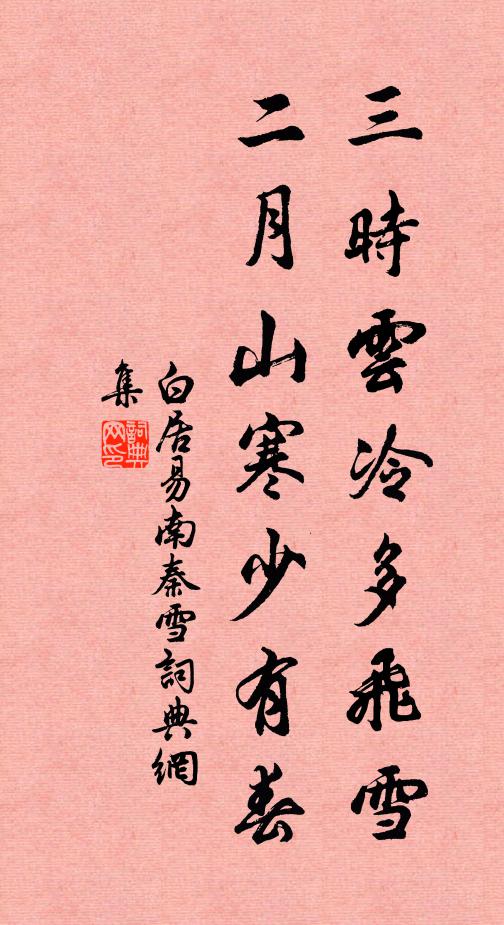 三時雲冷多飛雪
二月山寒少有春
白居易南秦雪詞典網
集
詞典网印